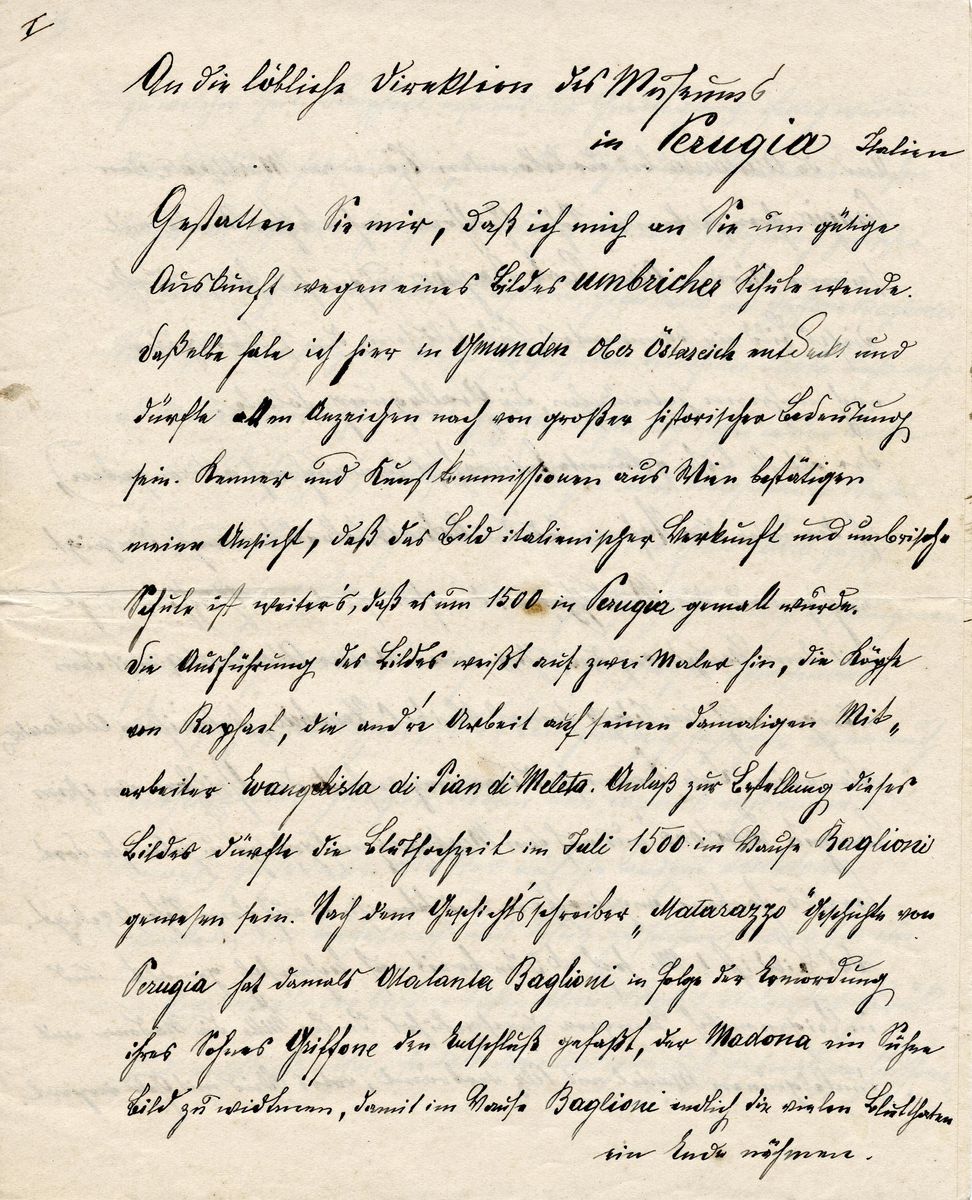 I
An die löbliche Direktion des Museums
in Perugia Italien
Gestatten Sie mir, daß ich mich an Sie um gütige
Auskunft wegen eines Bildes umbricher Schule wende.
Daßelbe habe ich hier in Gmunden Ober Östereich entdeckt und
dürfte allen Anzeichen nach von großer historischer Bedeutung
sein. Kenner und Kunstkommissionen aus Wien bestätigen
meine Ansicht, daß das Bild italienischer Herkunft und umbrische
Schule ist weiter's, daß es um 1500 in Perugia gemalt wurde.
Die Ausführung des Bildes weißt auf zwei Maler hin, die Köpfe
von Raphael, die and're Arbeit auf seinen damaligen Mit„
arbeiter Evangelista di Pian di Meleto. Anlaß zur Bestellung dieses
Bildes dürfte die Bluthochzeit im Juli 1500 im Hause Baglioni
gewesen sein. Nach dem Geschicht'sschreiber „Matarazzo" Geschichte von
Perugia hat damals Atalanta Baglioni in folge der Ermordung
ihres Sohnes Griffone den Entschluß gefaßt, der Madona ein Sühne
Bild zu widtmen, damit im Hause Baglioni endlich die vielen Blutthaten
ein Ende nähmen.